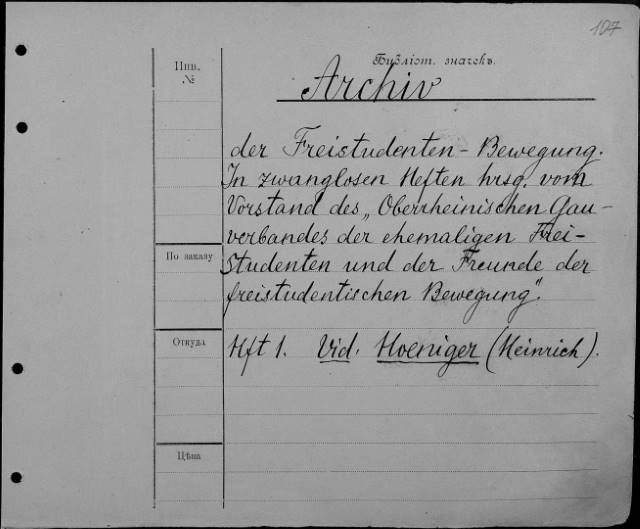 107
Библіот. значекъ.
Инв.
№
Archiv
der Freistudenten-Bewegung.
In zwanglosen Heften hrsg. vom
Vorstand des „Oberrheinischen Gau-
verbandes der ehemaligen Frei-
По заказу
Studenten und der Freunde der
freistudentischen Bewegung".
Откуда
Hft 1. Vid. Hoeniger (Heinrich).
Цѣна